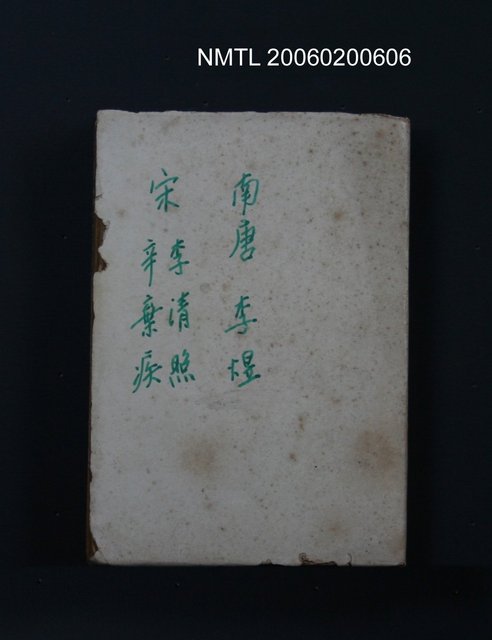 NMTL 20060200606
南唐 李煜
宋 李清照
辛棄疾